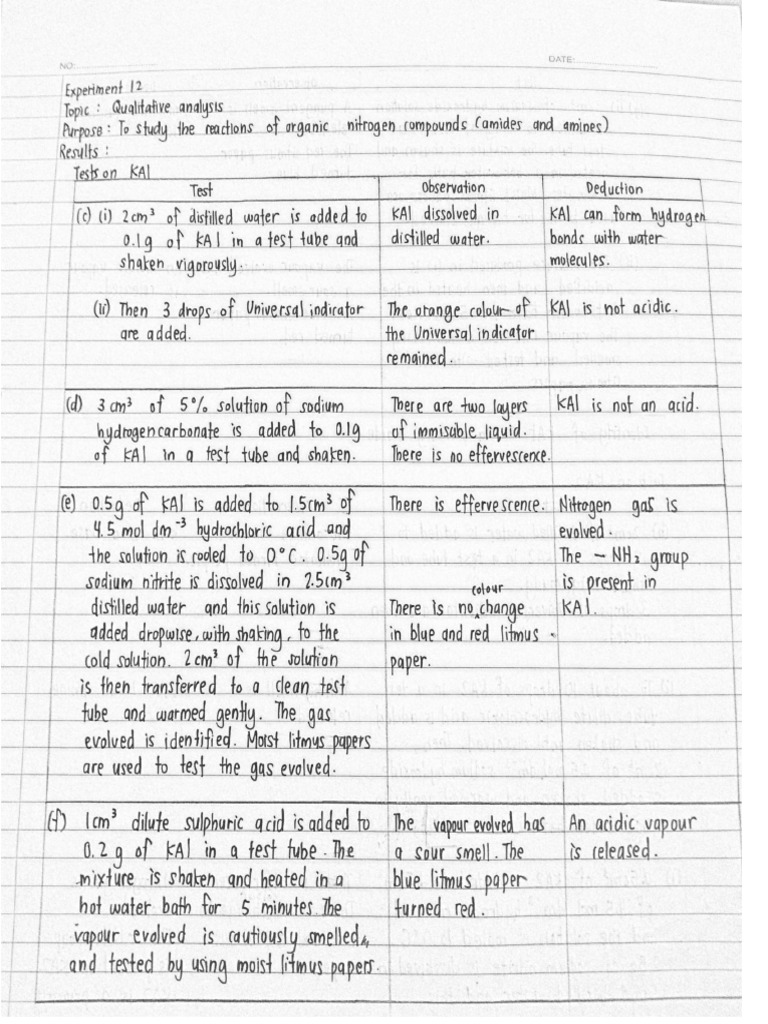 NO:
DATE:
Experiment 12
Topic : Qualitative analysis
Purpose : To study the reactions of organic nitrogen compounds (amides and amines)
Results :
Tests on KA1
Test
Observation
Deduction
(c) (i) 2cm³ of distilled water is added to
0.1g of KA1 in a test tube and
shaken vigorously.
KA1 dissolved in
distilled water.
KA1 can form hydrogen
bonds with water
molecules.
(ii) Then 3 drops of Universal indicator
are added.
The orange colour of
the Universal indicator
remained.
KA1 is not acidic.
(d) 3 cm³ of 5% solution of sodium
hydrogencarbonate is added to 0.1g
of KA1 in a test tube and shaken.
There are two layers
of immiscible liquid.
There is no effervescence.
KA1 is not an acid.
(e) 0.5g of KA1 is added to 1.5cm³ of
4.5 mol dm⁻³ hydrochloric acid and
the solution is cooled to 0°C. 0.5g of
sodium nitrite is dissolved in 2.5cm³
distilled water and this solution is
added dropwise, with shaking, to the
cold solution. 2cm³ of the solution
is then transferred to a clean test
tube and warmed gently. The gas
evolved is identified. Moist litmus papers
are used to test the gas evolved.
There is effervescence.
There is no colour change
in blue and red litmus
paper.
Nitrogen gas is
evolved.
The -NH₂ group
is present in
KA1.
(f) 1cm³ dilute sulphuric acid is added to
0.2 g of KA1 in a test tube. The
mixture is shaken and heated in a
hot water bath for 5 minutes. The
vapour evolved is cautiously smelled,
and tested by using moist litmus papers.
The vapour evolved has
a sour smell. The
blue litmus paper
turned red.
An acidic vapour
is released.